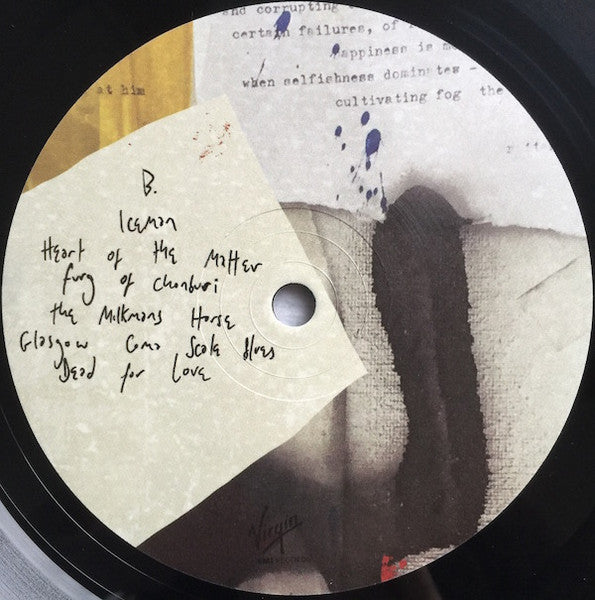 and corrupting
certain failures, of
happiness is
when selfishness dominates -
cultivating fog the
at him
B.
Iceman
Heart of the Matter
fury of Chonburi
the Milkmans Horse
Glasgow Coma Scale Blues
Dead for Love
Virgin